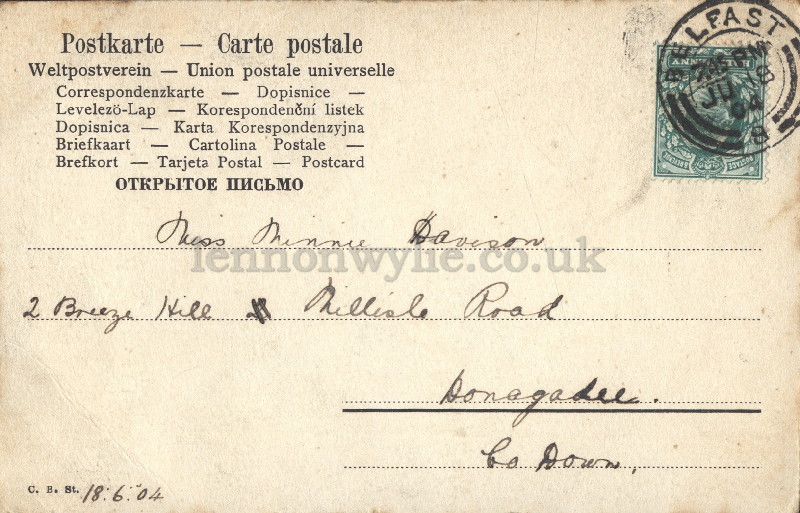 Postkarte — Carte postale
Weltpostverein — Union postale universelle
Correspondenzkarte — Dopisnice —
Levelező-Lap — Korespondenční listek
Dopisnica — Karta Korespondenzyjna
Briefkaart — Cartolina Postale —
Brefkort — Tarjeta Postal — Postcard
ОТКРЫТОЕ ПИСЬМО
BELFAST
7.15 PM
JU 18
04
8
HALFPENNY
POSTAGE REVENUE
Miss Minnie Davison
lennonwylie.co.uk
2 Breeze Hill Millisle Road
Donagadee.
Co Down.
C. B. St. 18.6.04